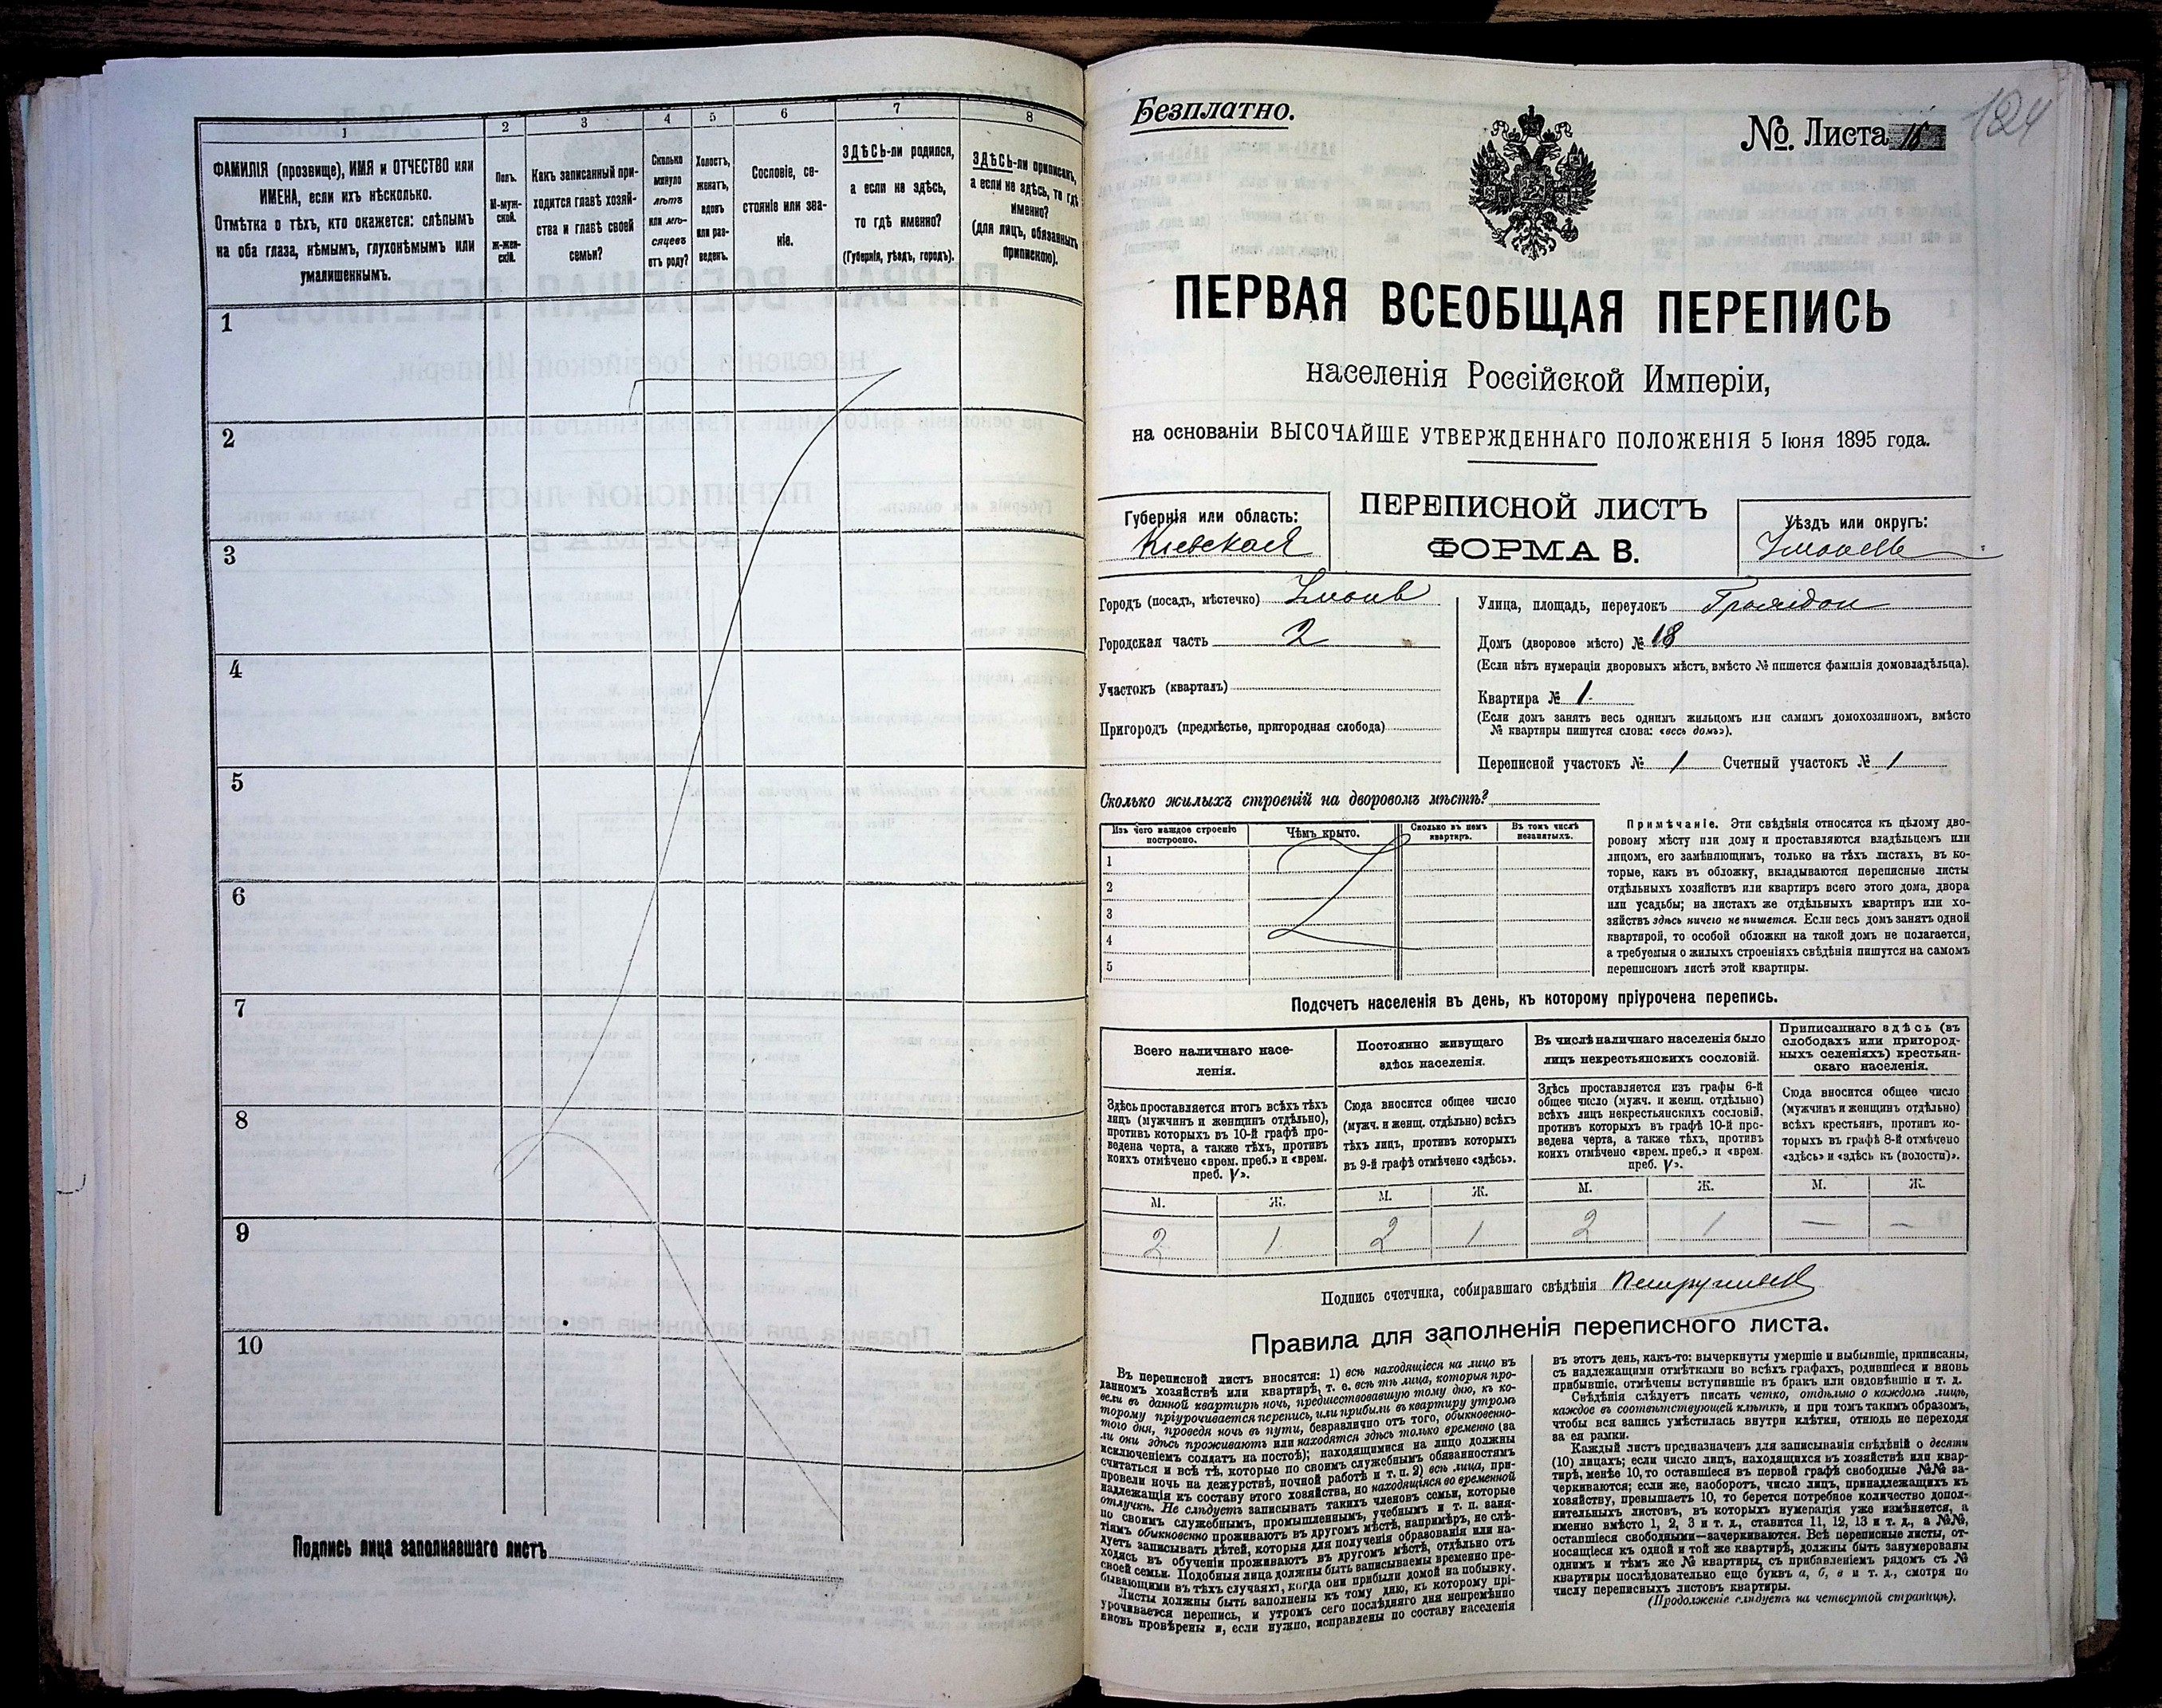 1 2 3 4 5 6 7 8
ФАМИЛІЯ (прозвище), ИМЯ и ОТЧЕСТВО или
ИМЕНА, если ихъ нѣсколько.
Отмѣтка о тѣхъ, кто окажется: слѣпымъ
на оба глаза, нѣмымъ, глухонѣмымъ или
умалишеннымъ.
Полъ.
М-муж-
ской.
Ж-жен-
скій.
Какъ записанный при-
ходится главѣ хозяй-
ства и главѣ своей
семьи?
Сколько
минуло
лѣтъ
или мѣ-
сяцевъ
отъ роду?
Холостъ,
женатъ,
вдовъ
или раз-
веденъ.
Сословіе, со-
стояніе или зва-
ніе.
ЗДѢСЬ-ли родился,
а если не здѣсь,
то гдѣ именно?
(Губернія, уѣздъ, городъ).
ЗДѢСЬ-ли приписанъ,
а если не здѣсь, то гдѣ
именно?
(для лицъ, обязанныхъ
припискою).
1
2
3
4
5
6
7
8
9
10
Подпись лица заполнявшаго листъ
Безплатно.
№ Листа 16
124
ПЕРВАЯ ВСЕОБЩАЯ ПЕРЕПИСЬ
населенія Россійской Имперіи,
на основаніи ВЫСОЧАЙШЕ УТВЕРЖДЕННАГО ПОЛОЖЕНІЯ 5 Іюня 1895 года.
Губернія или область:
Кіевская
ПЕРЕПИСНОЙ ЛИСТЪ
ФОРМА В.
Уѣздъ или округъ:
Городъ (посадъ, мѣстечко) Умань
Городская часть 2
Участокъ (кварталъ)
Пригородъ (предмѣстье, пригородная слобода)
Улица, площадь, переулокъ
Домъ (дворовое мѣсто) № 18
(Если нѣтъ нумераціи дворовыхъ мѣстъ, вмѣсто № пишется фамилія домовладѣльца).
Квартира № 1
(Если домъ занятъ весь однимъ жильцомъ или самимъ домохозяиномъ, вмѣсто
№ квартиры пишутся слова: «весь домъ»).
Переписной участокъ № 1 Счетный участокъ № 1
Сколько жилыхъ строеній на дворовомъ мѣстѣ?
Изъ чего каждое строеніе
построено.
Чѣмъ крыто.
Сколько въ немъ
квартиръ.
Въ томъ числѣ
незанятыхъ.
1
2
3
4
5
Примѣчаніе. Эти свѣдѣнія относятся къ цѣлому дво-
ровому мѣсту или дому и проставляются владѣльцемъ или
лицомъ, его замѣняющимъ, только на тѣхъ листахъ, въ ко-
торые, какъ въ обложку, вкладываются переписные листы
отдѣльныхъ хозяйствъ или квартиръ всего этого дома, двора
или усадьбы; на листахъ же отдѣльныхъ квартиръ или хо-
зяйствъ здѣсь ничего не пишется. Если весь домъ занятъ одной
квартирой, то особой обложки на такой домъ не полагается,
а требуемыя о жилыхъ строеніяхъ свѣдѣнія пишутся на самомъ
переписномъ листѣ этой квартиры.
Подсчетъ населенія въ день, къ которому пріурочена перепись.
Всего наличнаго насе-
ленія.
Здѣсь проставляется итогъ всѣхъ тѣхъ
лицъ (мужчинъ и женщинъ отдѣльно),
противъ которыхъ въ 10-й графѣ про-
ведена черта, а также тѣхъ, противъ
коихъ отмѣчено «врем. преб.» и «врем.
преб. V».
Постоянно живущаго
здѣсь населенія.
Сюда вносится общее число
(мужч. и женщ. отдѣльно) всѣхъ
тѣхъ лицъ, противъ которыхъ
въ 9-й графѣ отмѣчено «здѣсь».
Въ числѣ наличнаго населенія было
лицъ некрестьянскихъ сословій.
Здѣсь проставляется изъ графы 6-й
общее число (мужч. и женщ. отдѣльно)
всѣхъ лицъ некрестьянскихъ сословій,
противъ которыхъ въ графѣ 10-й про-
ведена черта, а также тѣхъ, противъ
коихъ отмѣчено «врем. преб.» и «врем.
преб. V».
Приписаннаго здѣсь (въ
слободахъ или пригород-
ныхъ селеніяхъ) крестьян-
скаго населенія.
Сюда вносится общее число
(мужчинъ и женщинъ отдѣльно)
всѣхъ крестьянъ, противъ ко-
торыхъ въ графѣ 8-й отмѣчено
«здѣсь» и «здѣсь къ (волости)».
М. Ж. М. Ж. М. Ж. М. Ж.
2 1 2 1 2 1 — —
Подпись счетчика, собиравшаго свѣдѣнія
Правила для заполненія переписного листа.
Въ переписной листъ вносятся: 1) всѣ находящіеся на лицо въ
данномъ хозяйствѣ или квартирѣ, т. е. всѣ тѣ лица, которыя про-
вели въ данной квартирѣ ночь, предшествовавшую тому дню, къ ко-
торому пріурочивается перепись, или прибыли въ квартиру утромъ
того дня, проведя ночь въ пути, безразлично отъ того, обыкновенно-
ли они здѣсь проживаютъ или находятся здѣсь только временно (за
исключеніемъ солдатъ на постоѣ); находящимися на лицо должны
считаться и всѣ тѣ, которые по своимъ служебнымъ обязанностямъ
провели ночь на дежурствѣ, ночной работѣ и т. п. 2) всѣ лица, при-
надлежащія къ составу этого хозяйства, но находящіяся во временной
отлучкѣ. Не слѣдуетъ записывать такихъ членовъ семьи, которые
по своимъ служебнымъ, промышленнымъ, учебнымъ и т. п. заня-
тіямъ обыкновенно проживаютъ въ другомъ мѣстѣ, напримѣръ, не слѣ-
дуетъ записывать дѣтей, которыя для полученія образованія или на-
ходясь въ обученіи проживаютъ въ другомъ мѣстѣ, отдѣльно отъ
своей семьи. Подобныя лица должны быть записываемы временно пре-
бывающими въ тѣхъ случаяхъ, когда они прибыли домой на побывку.
Листы должны быть заполнены къ тому дню, къ которому прі-
урочивается перепись, и утромъ сего послѣдняго дня непремѣнно
вновь провѣрены и, если нужно, исправлены по составу населенія
въ этотъ день, какъ-то: вычеркнуты умершіе и выбывшіе, приписаны,
съ надлежащими отмѣтками во всѣхъ графахъ, родившіеся и вновь
прибывшіе, отмѣчены вступившіе въ бракъ или овдовѣвшіе и т. д.
Свѣдѣнія слѣдуетъ писать четко, отдѣльно о каждомъ лицѣ,
каждое въ соотвѣтствующей клѣткѣ, и при томъ такимъ образомъ,
чтобы вся запись умѣстилась внутри клѣтки, отнюдь не переходя
за ея рамки.
Каждый листъ предназначенъ для записыванія свѣдѣній о десяти
(10) лицахъ; если число лицъ, находящихся въ хозяйствѣ или квар-
тирѣ, менѣе 10, то оставшіеся въ первой графѣ свободные №№ за-
черкиваются; если же, наоборотъ, число лицъ, принадлежащихъ къ
хозяйству, превышаетъ 10, то берется потребное количество допол-
нительныхъ листовъ, въ которыхъ нумерація уже измѣняется, а
именно вмѣсто 1, 2, 3 и т. д., ставится 11, 12, 13 и т. д., а №№,
оставшіеся свободными—зачеркиваются. Всѣ переписные листы, от-
носящіеся къ одной и той же квартирѣ, должны быть занумерованы
однимъ и тѣмъ же № квартиры, съ прибавленіемъ рядомъ съ №
квартиры послѣдовательно еще буквъ а, б, в и т. д., смотря по
числу переписныхъ листовъ квартиры.
(Продолженіе слѣдуетъ на четвертой страницѣ).